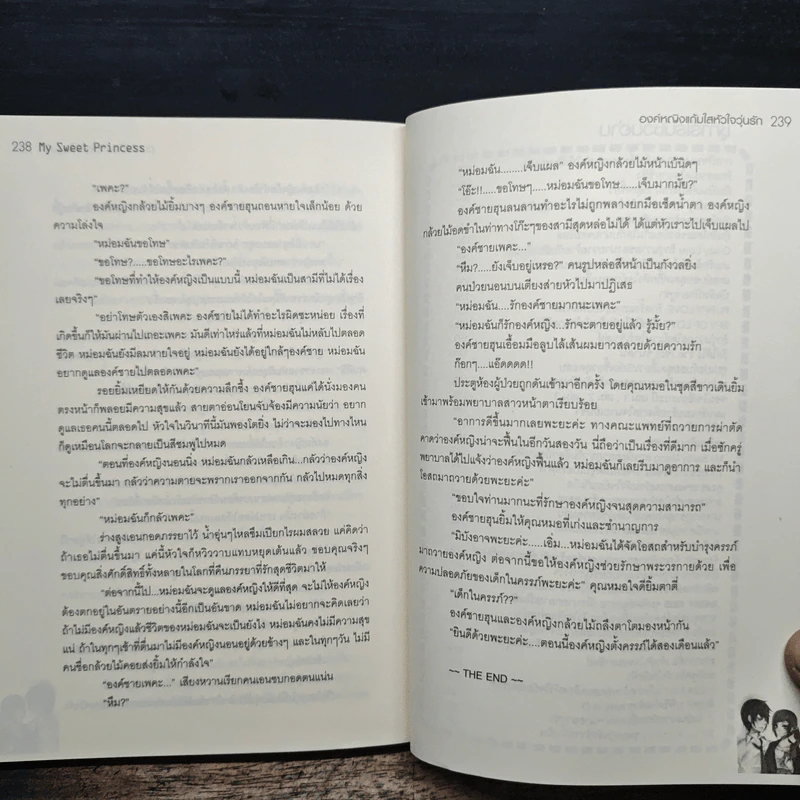 238 My Sweet Princess
"เพคะ?"
องค์หญิงกล้วยไม้ยิ้มบางๆ องค์ชายฮุนถอนหายใจเล็กน้อย ด้วย
ความโล่งใจ
"หม่อมฉันขอโทษ"
"ขอโทษ?.....ขอโทษอะไรเพคะ?"
"ขอโทษที่ทำให้องค์หญิงเป็นแบบนี้ หม่อมฉันเป็นสามีที่ไม่ได้เรื่อง
เลยจริงๆ"
"อย่าโทษตัวเองสิเพคะ องค์ชายไม่ได้ทำอะไรผิดซะหน่อย เรื่องที่
เกิดขึ้นก็ให้มันผ่านไปเถอะเพคะ มันดีเท่าไหร่แล้วที่หม่อมฉันไม่หลับไปตลอด
ชีวิต หม่อมฉันยังมีลมหายใจอยู่ หม่อมฉันยังได้อยู่ใกล้ๆองค์ชาย หม่อมฉัน
อยากดูแลองค์ชายไปตลอดเพคะ"
รอยยิ้มเหยียดให้กันด้วยความลึกซึ้ง องค์ชายฮุนแค่ได้นั่งมองคน
ตรงหน้าก็พลอยมีความสุขแล้ว สายตาอ่อนโยนจับจ้องมีความนัยว่า อยาก
ดูแลเธอคนนี้ตลอดไป หัวใจในวินาทีนี้มันพองโตยิ่ง ไม่ว่าจะมองไปทางไหน
ก็ดูเหมือนโลกจะกลายเป็นสีชมพูไปหมด
"ตอนที่องค์หญิงนอนนิ่ง หม่อมฉันกลัวเหลือเกิน...กลัวว่าองค์หญิง
จะไม่ตื่นขึ้นมา กลัวว่าความตายจะพรากเราออกจากกัน กลัวไปหมดทุกสิ่ง
ทุกอย่าง"
"หม่อมฉันก็กลัวเพคะ"
ร่างสูงเอนกอดภรรยาไว้ น้ำอุ่นๆไหลซึมเปียกไรผมสลวย แค่คิดว่า
ถ้าเธอไม่ตื่นขึ้นมา แค่นี้หัวใจก็หวิววาบแทบหยุดเต้นแล้ว ขอบคุณจริงๆ
ขอบคุณสิ่งศักดิ์สิทธิ์ทั้งหลายในโลกที่คืนภรรยาที่รักสุดชีวิตมาให้
"ต่อจากนี้ไป...หม่อมฉันจะดูแลองค์หญิงให้ดีที่สุด จะไม่ให้องค์หญิง
ต้องตกอยู่ในอันตรายอย่างนี้อีกเป็นอันขาด หม่อมฉันไม่อยากจะคิดเลยว่า
ถ้าไม่มีองค์หญิงแล้วชีวิตของหม่อมฉันจะเป็นยังไง หม่อมฉันคงไม่มีความสุข
แน่ ถ้าในทุกๆเช้าที่ตื่นมาไม่มีองค์หญิงนอนอยู่ด้วยข้างๆ และในทุกๆวัน ไม่มี
คนชื่อกล้วยไม้คอยส่งยิ้มให้กำลังใจ"
"องค์ชายเพคะ..." เสียงหวานเรียกคนเอนซบกอดตนแน่น
"หืม?"
องค์หญิงแก้มใสหัวใจวุ่นรัก 239
"หม่อมฉัน........เจ็บแผล" องค์หญิงกล้วยไม้หน้าเบ้นิดๆ
"โอ๊ะ!!.....ขอโทษๆ....หม่อมฉันขอโทษ......เจ็บมากมั้ย?"
องค์ชายฮุนลนลานทำอะไรไม่ถูกพลางยกมือเช็ดน้ำตา องค์หญิง
กล้วยไม้อดขำในท่าทางโก๊ะๆของสามีสุดหล่อไม่ได้ ได้แต่หัวเราะไปเจ็บแผลไป
"องค์ชายเพคะ..."
"หืม?....ยังเจ็บอยู่เหรอ?" คนรูปหล่อสีหน้าเป็นกังวลยิ่ง
คนป่วยนอนบนเตียงส่ายหัวไปมาปฏิเสธ
"หม่อมฉัน....รักองค์ชายมากนะเพคะ"
"หม่อมฉันก็รักองค์หญิง...รักจะตายอยู่แล้ว รู้มั้ย?"
องค์ชายฮุนเอื้อมมือลูบไล้เส้นผมยาวสลวยด้วยความรัก
ก๊อกๆ....แอ๊ดดดด!!
ประตูห้องผู้ป่วยถูกดันเข้ามาอีกครั้ง โดยคุณหมอในชุดสีขาวเดินยิ้ม
เข้ามาพร้อมพยาบาลสาวหน้าตาเรียบร้อย
"อาการดีขึ้นมากเลยพะยะค่ะ ทางคณะแพทย์ที่ถวายการผ่าตัด
คาดว่าองค์หญิงน่าจะฟื้นในอีกวันสองวัน นี่ถือว่าเป็นเรื่องที่ดีมาก เมื่อซักครู่
พยาบาลได้ไปแจ้งว่าองค์หญิงฟื้นแล้ว หม่อมฉันก็เลยรีบมาดูอาการ และก็นำ
โอสถมาถวายด้วยพะยะค่ะ"
"ขอบใจท่านมากนะที่รักษาองค์หญิงจนสุดความสามารถ"
องค์ชายฮุนยิ้มให้คุณหมอที่เก่งและชำนาญการ
"มิบังอาจพะยะค่ะ.....เอิ่ม...หม่อมฉันได้จัดโอสถสำหรับบำรุงครรภ์
มาถวายองค์หญิง ต่อจากนี้ขอให้องค์หญิงช่วยรักษาพระวรกายด้วย เพื่อ
ความปลอดภัยของเด็กในครรภ์พะยะค่ะ" คุณหมอใจดียิ้มตาตี่
"เด็กในครรภ์??"
องค์ชายฮุนและองค์หญิงกล้วยไม้ถลึงตาโตมองหน้ากัน
"ยินดีด้วยพะยะค่ะ....ตอนนี้องค์หญิงตั้งครรภ์ได้สองเดือนแล้ว"
~~ THE END ~~